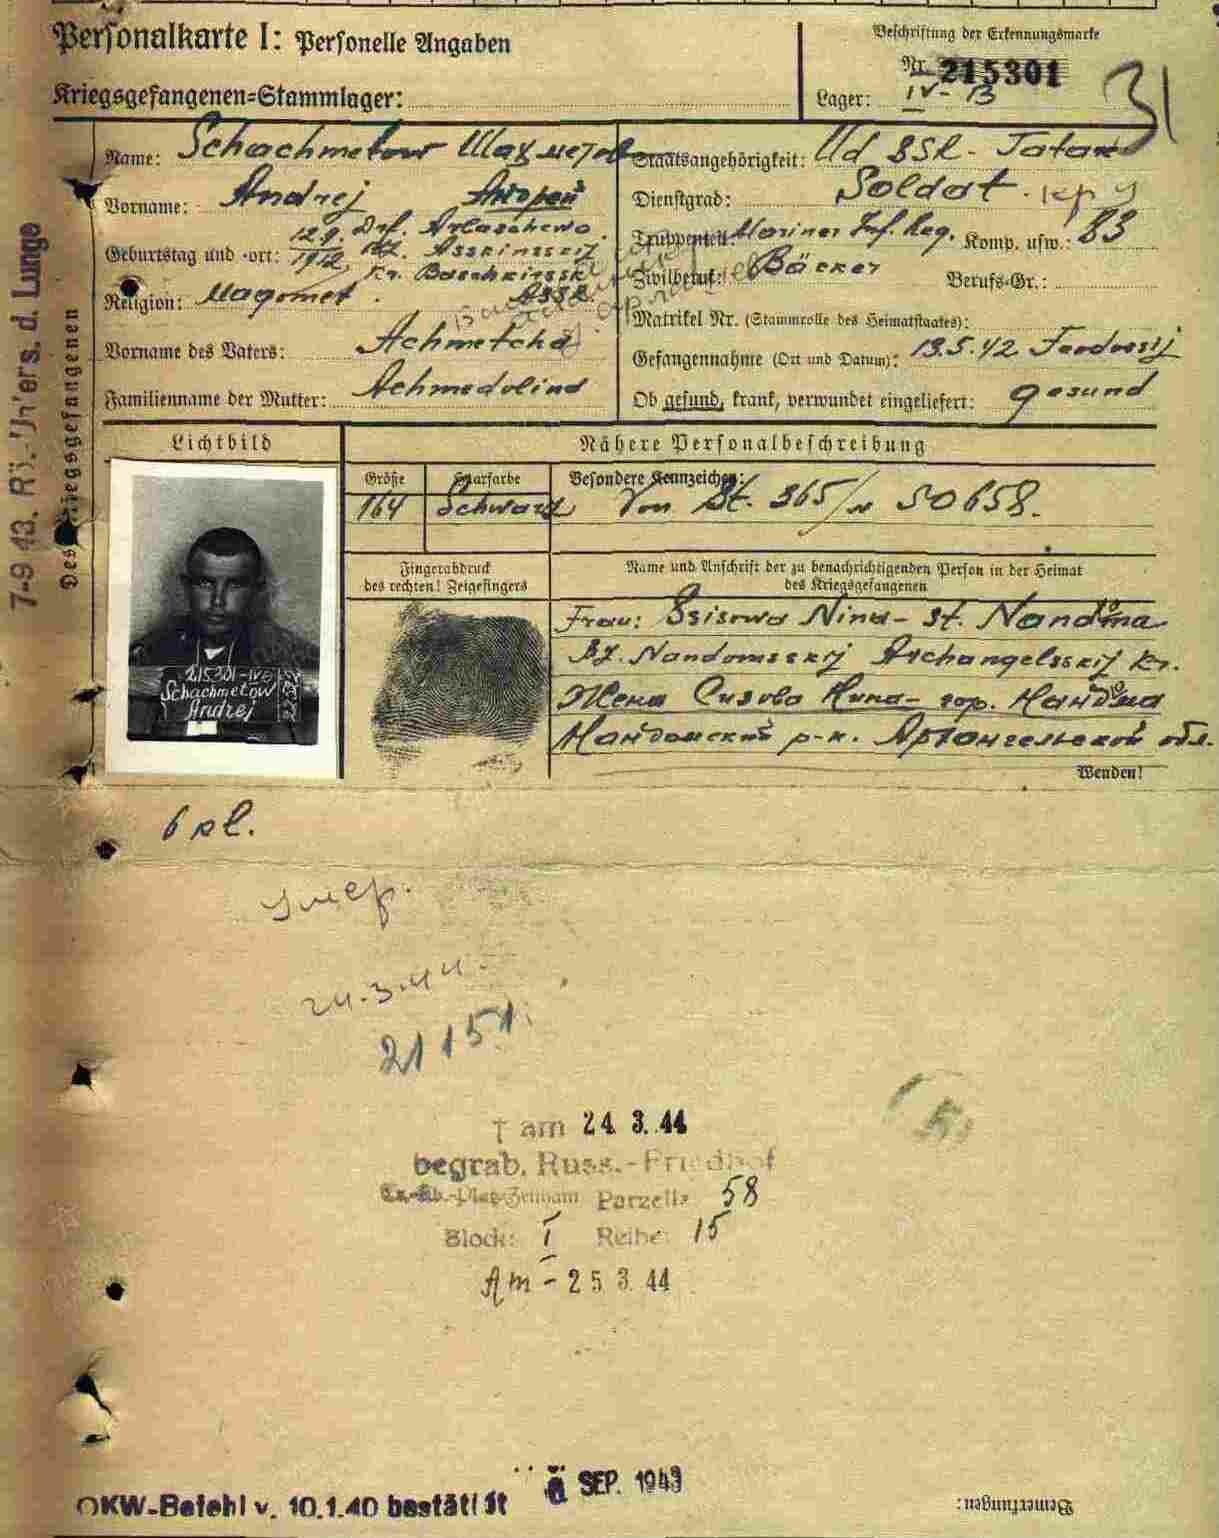 Personalkarte I: Personelle Angaben
Kriegsgefangenen=Stammlager:
Beschriftung der Erkennungsmarke
Nr. 215301
Lager: IV-B
31
Name: Schachmetow Шахметов
Vorname: Andrej Андрей
Geburtstag und -ort: 12.9. 1912, Drf. Arlaschewo
Bz. Asskinsskij
Kr. Baschkirssk.
ASSR.
Religion: Magomet.
Vorname des Vaters: Achmetcha
Familienname der Mutter: Achmedolina
Staatsangehörigkeit: Ud SSR - Tatar
Dienstgrad: Soldat.
Truppenteil: Mariner Inf. Reg. Komp. usw.: 83
Zivilberuf: Bäcker Berufs-Gr.:
Matrikel Nr. (Stammrolle des Heimatstaates):
Gefangennahme (Ort und Datum): 13.5.42 Feodossij
Ob gesund, krank, verwundet eingeliefert: gesund
Des Kriegsgefangenen
Lichtbild
Nähere Personalbeschreibung
Größe Haarfarbe Besondere Kennzeichen:
164 Schwarz Von St. 365/N 50658.
215301-IVB
Schachmetow
Andrej
Fingerabdruck
des rechten! Zeigefingers
Name und Anschrift der zu benachrichtigenden Person in der Heimat
des Kriegsgefangenen
Frau: Ssisowa Nina - St. Nandoma
Bz. Nandomsskij Archangelsskij Kr.
Жена Сизова Нина - гор. Няндома
Няндомский р-н. Архангельской обл.
Wenden!
7-9 43. Rö.-Un'ers. d. Lunge
6 pl.
Умер.
24.3.44.
21151.
† am 24. 3. 44
begrab. Russ.-Friedhof
Parzelle 58
Block: I Reihe: 15
Am - 25 3. 44
SEP. 1943
OKW-Befehl v. 10.1.40 bestätigt
Bemerkungen: